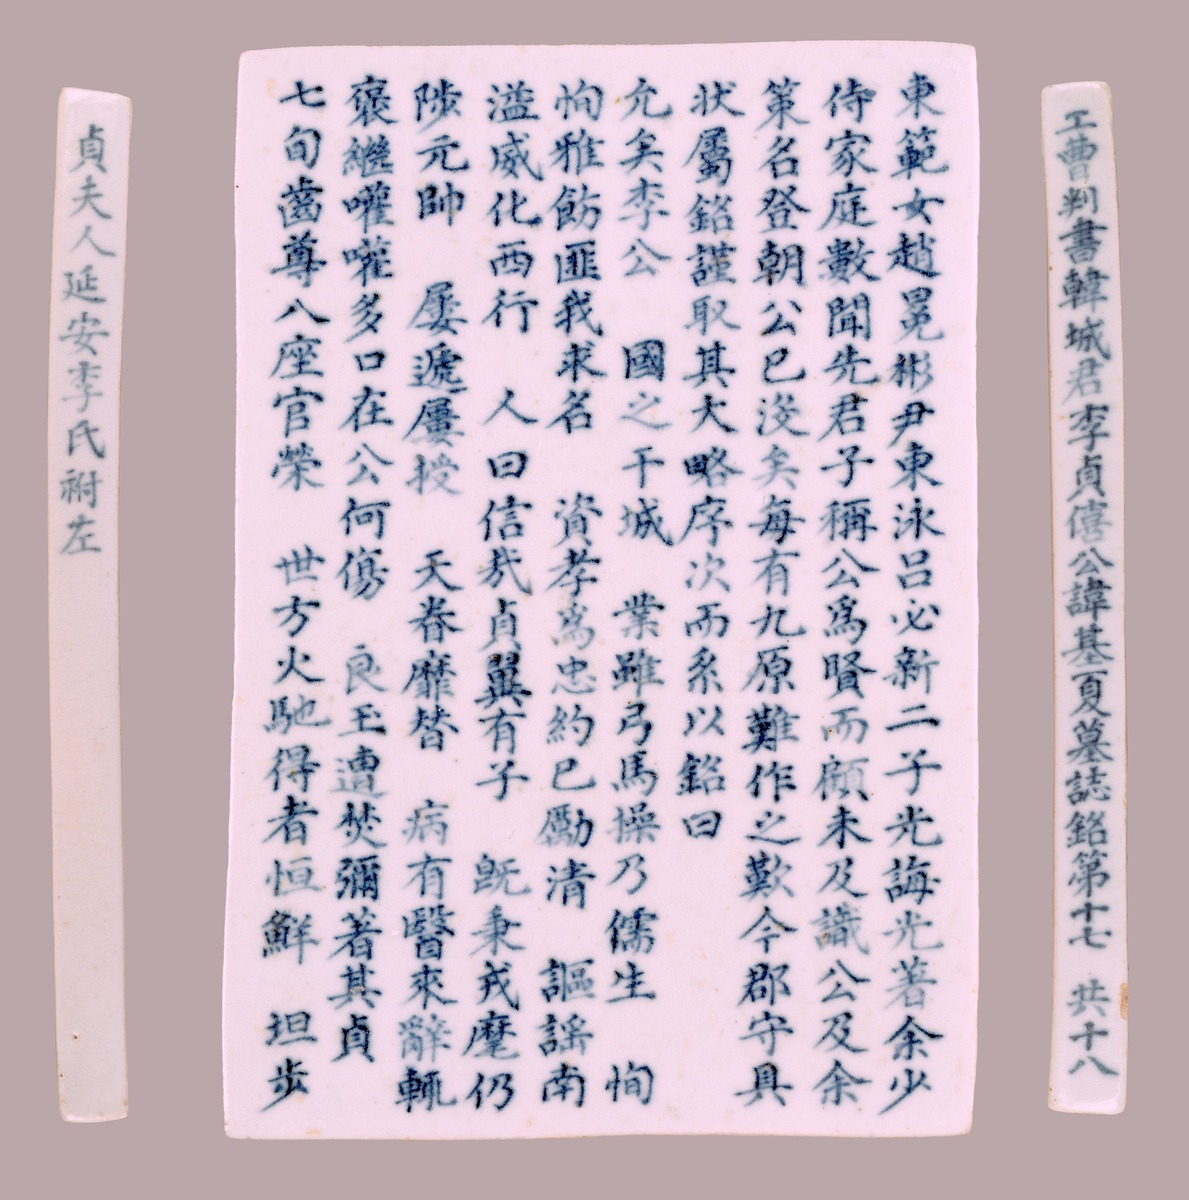 工曹判書韓城君李貞僖公諱基夏墓誌銘第十七 共十八
東範女趙冕彬尹東泳呂必新二子光誨光著余少
侍家庭數聞先君子稱公爲賢而顧未及識公及余
策名登朝公已沒矣每有九原難作之歎今郡守具
狀屬銘謹取其大略序次而系以銘曰
允矣李公 國之干城 業雖弓馬操乃儒生 恂
恂雅飭匪我求名 資孝爲忠約己勵清 謳謠南
溢威化西行 人曰信哉貞翼有子 旣秉戎麾仍
陟元帥 屢遞屢授 天眷靡替 病有醫來辭輒
褒繼嚾嚾多口在公何傷 良玉遭焚彌著其貞
七旬齒尊八座官榮 世方火馳得者恒鮮 坦步
貞夫人延安李氏祔左